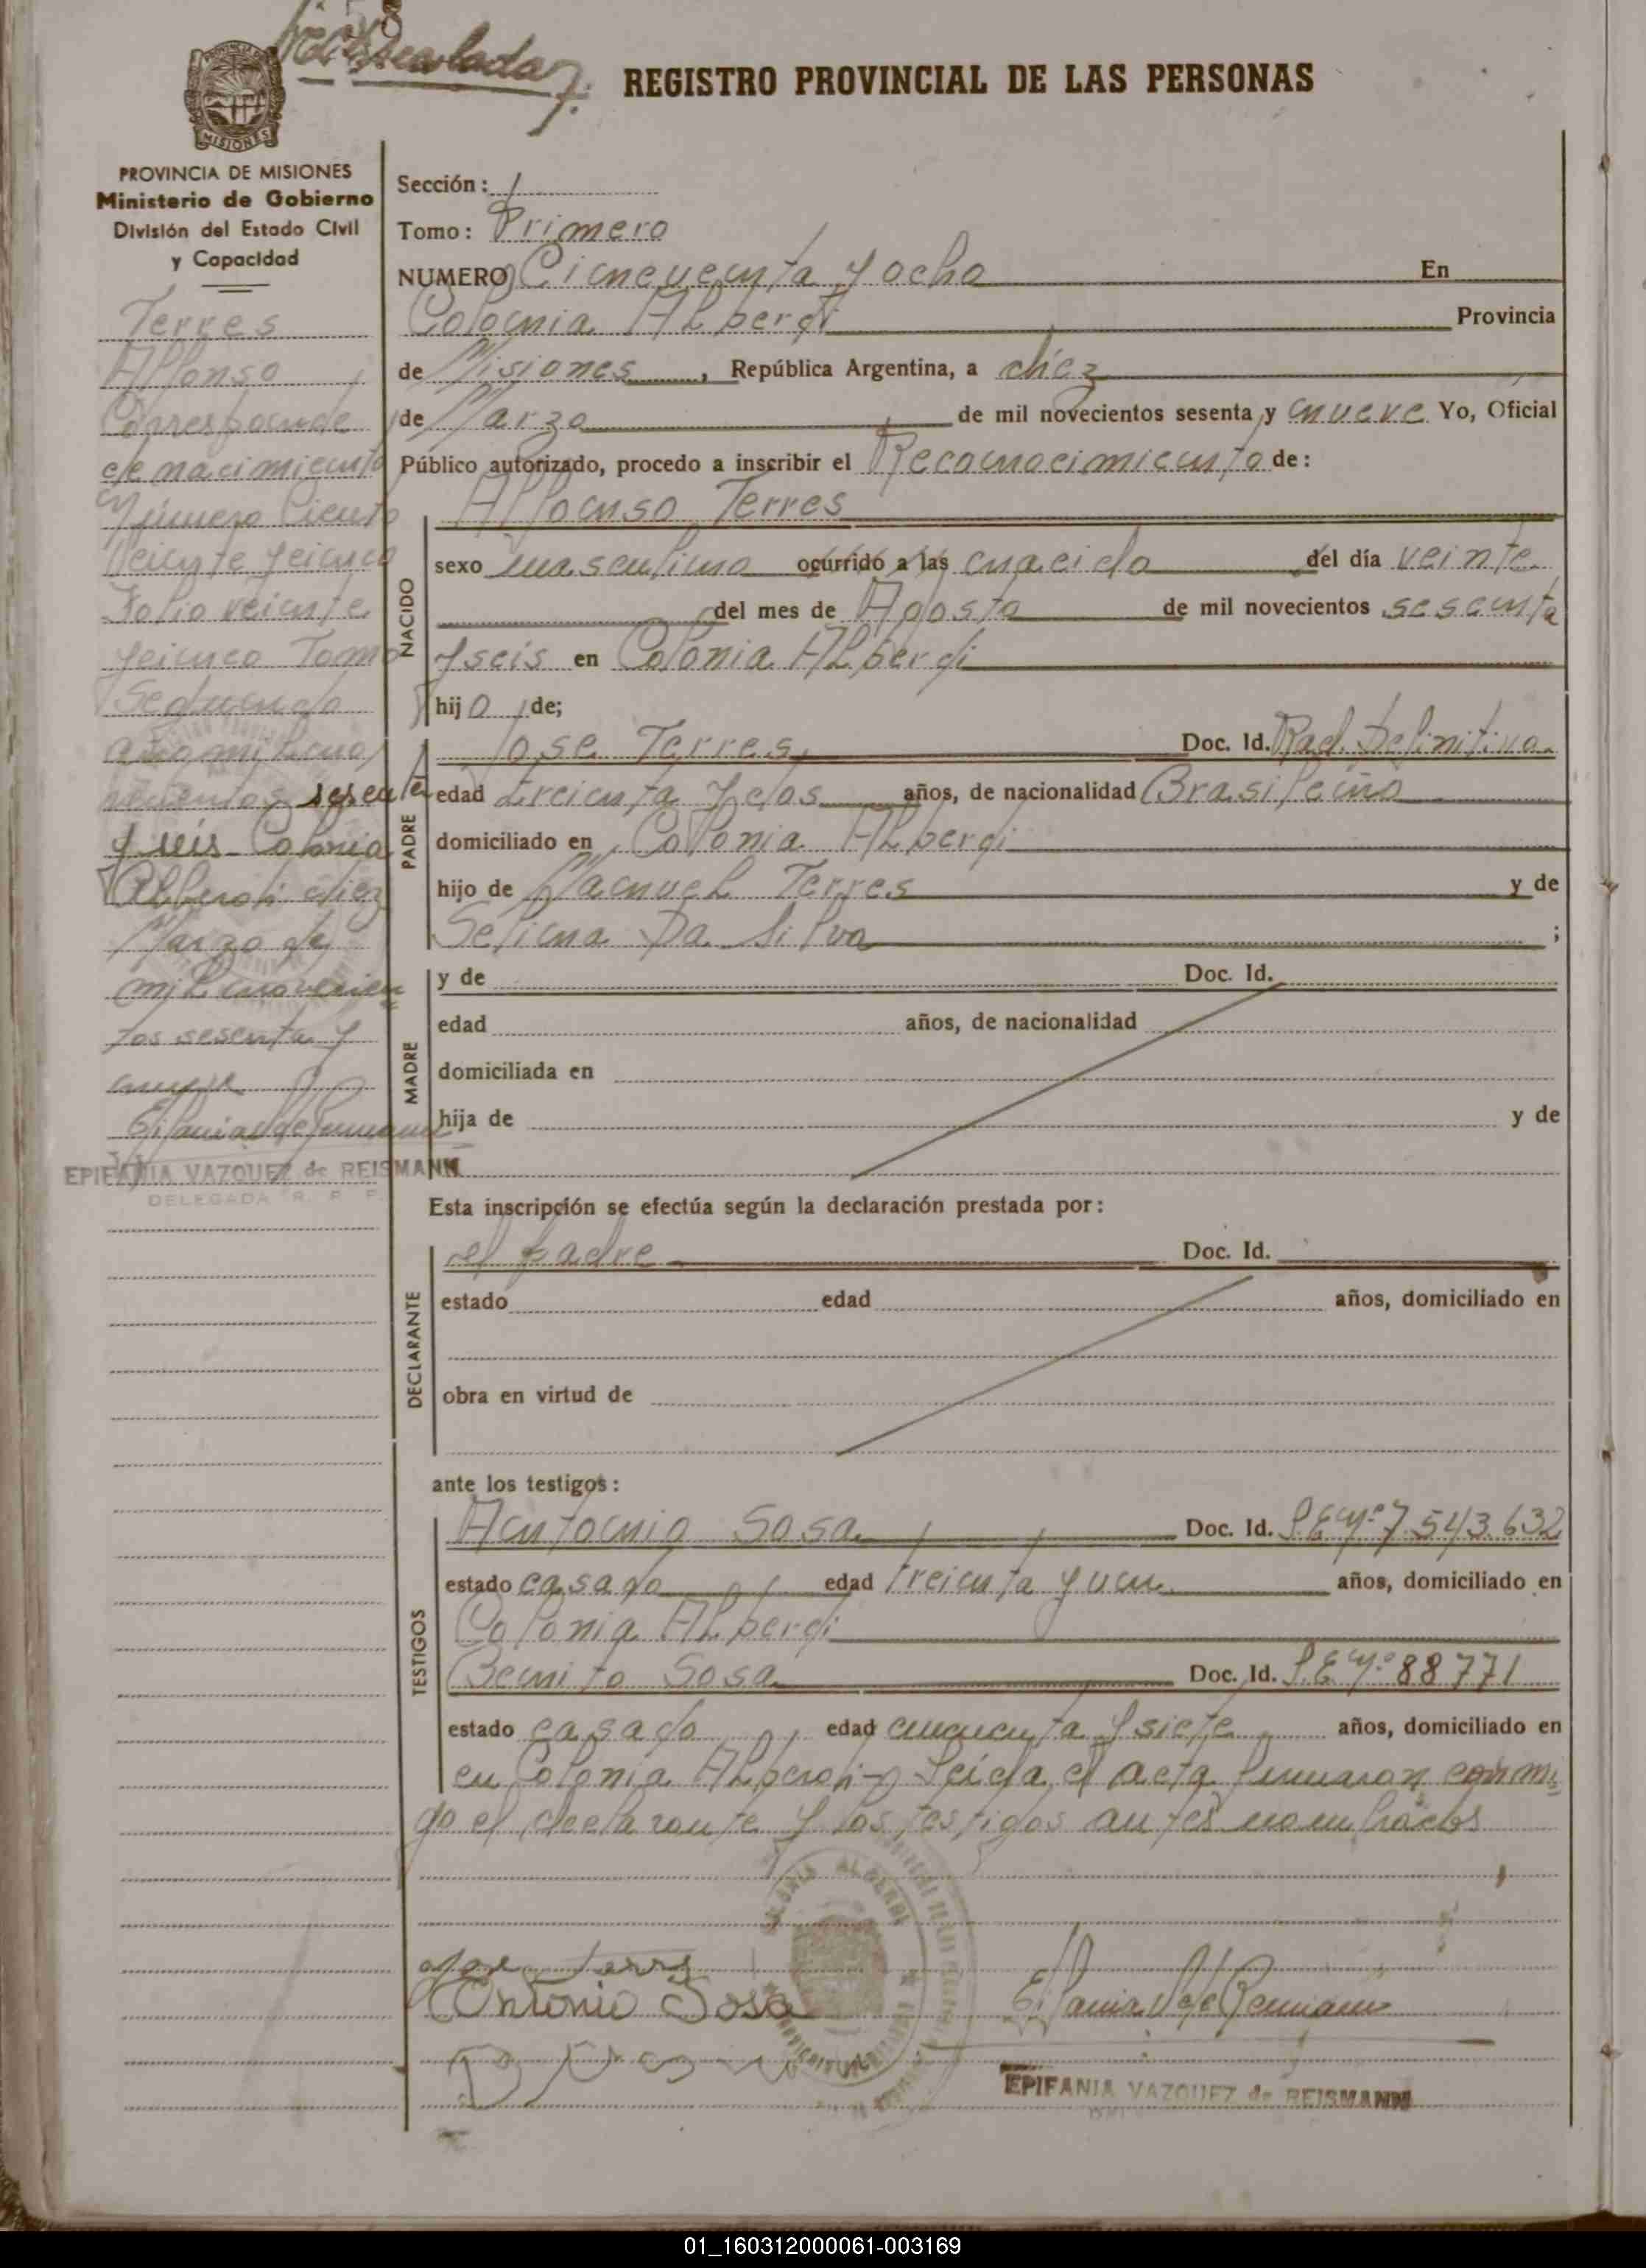 58
REGISTRO PROVINCIAL DE LAS PERSONAS
PROVINCIA DE MISIONES
Ministerio de Gobierno
División del Estado Civil
y Capacidad
Terres
Alfonso
Corresponde
de nacimiento
Número Ciento
Veinte y cinco
Folio veinte
y cinco Tomo
Segundo
año mil no
vecientos sesenta
y seis Colonia
Alberdi diez
Marzo de
mil novecien
tos sesenta y
nueve
EPIFANIA VAZQUEZ de REISMANN
DELEGADA R. P. P.
Sección: 1
Tomo: Primero
NUMERO Cincuenta y ocho En
Colonia Alberdi Provincia
de Misiones, República Argentina, a diez
de Marzo de mil novecientos sesenta y nueve Yo, Oficial
Público autorizado, procedo a inscribir el Reconocimiento de:
NACIDO
Alfonso Terres
sexo masculino ocurrido a las nacido del día veinte
del mes de Agosto de mil novecientos sesenta
y seis en Colonia Alberdi
hijo de;
PADRE
Jose Terres Doc. Id. Rad. Definitiva
edad treinta y dos años, de nacionalidad Brasileño
domiciliado en Colonia Alberdi
hijo de Manuel Terres y de
Selina Da Silva ;
MADRE
y de Doc. Id.
edad años, de nacionalidad
domiciliada en
hija de y de
Esta inscripción se efectúa según la declaración prestada por:
DECLARANTE
el padre Doc. Id.
estado edad años, domiciliado en
obra en virtud de
ante los testigos:
TESTIGOS
Antonio Sosa Doc. Id. L.E Nº 7.543.632
estado casado edad treinta y un años, domiciliado en
Colonia Alberdi
Benito Sosa Doc. Id. L.E Nº 88771
estado casado edad cincuenta y siete años, domiciliado en
en Colonia Alberdi Leída el acta firmaron conmi
go el declarante y los testigos antes nombrados
Jose Terres
Antonio Sosa
EPIFANIA VAZQUEZ de REISMANN
01_160312000061-003169